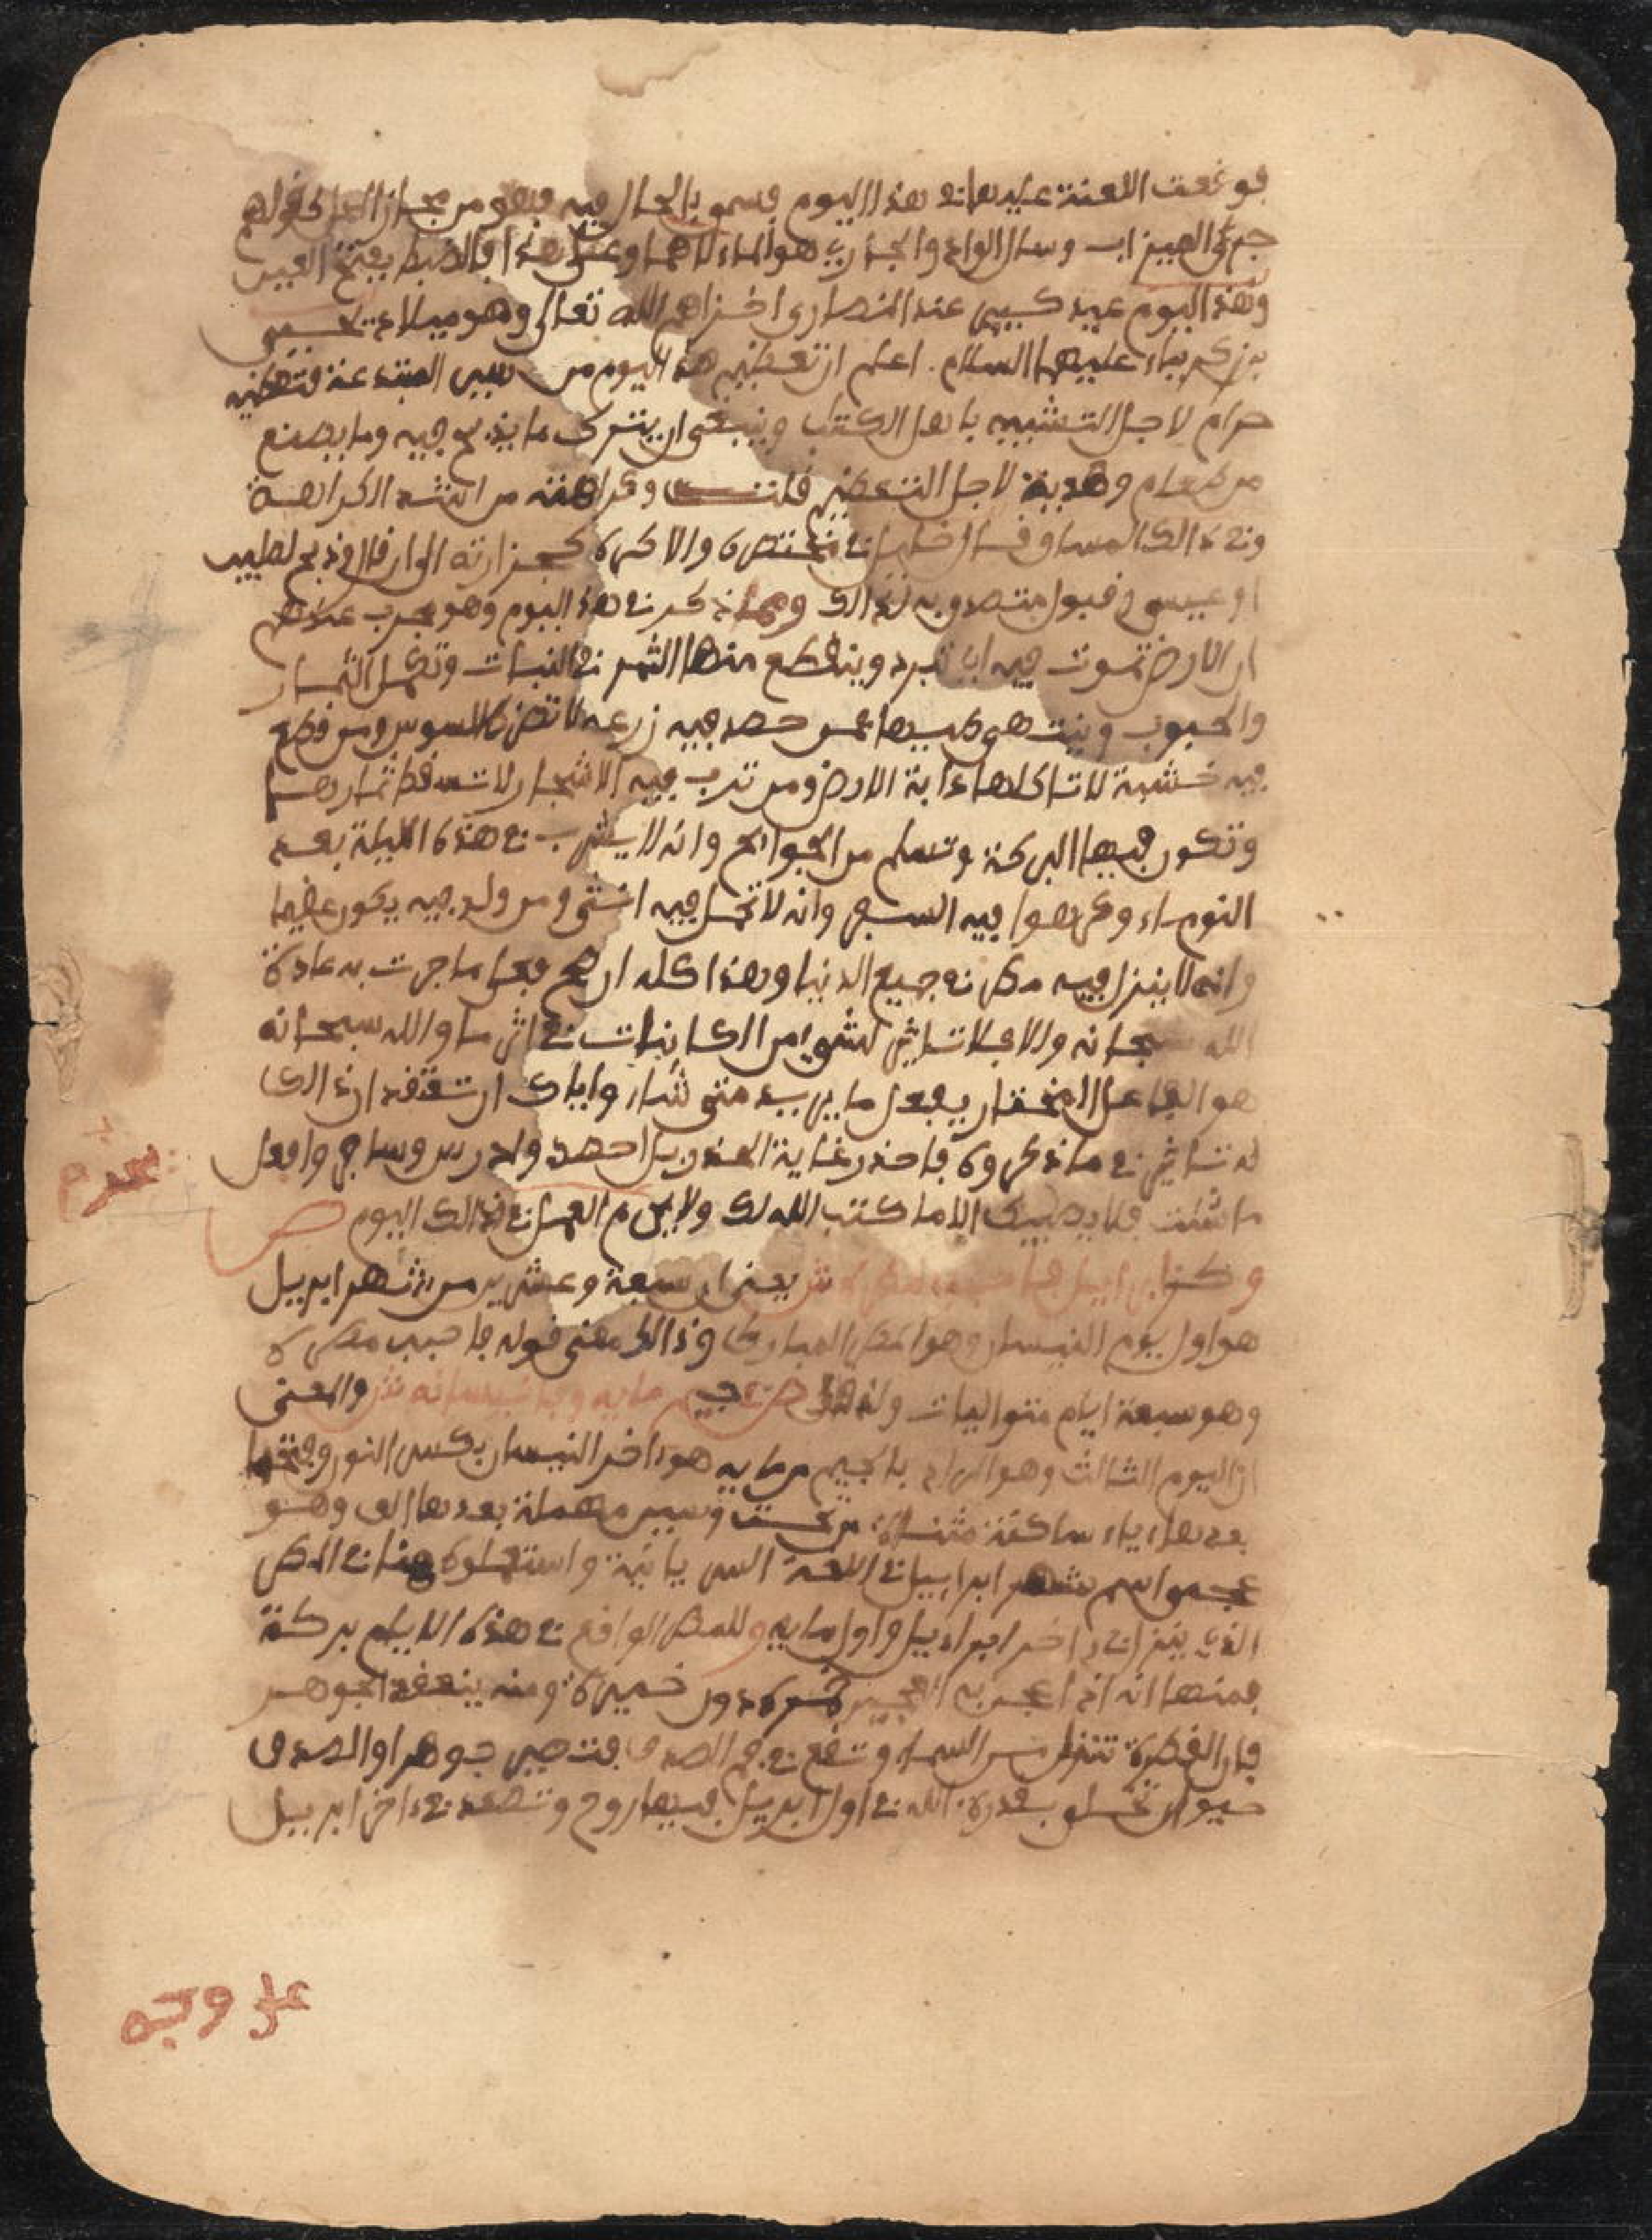 فوقعت اللعنة عليها في هذا اليوم فسمي بالحال فيه فهو من مجاز العا كقولهم
جرى الميزاب وسال الواد والجاري هو الماء لا هما وعلى هذا فالضبط بفتح العين
وهذا اليوم عيد كبير عند النصارى اخزاهم الله تعالى وهو ميلاد يحيى
بن زكرياء عليهما السلام. اعلم ان تعظيم هذا اليوم من سير المبتدعة فتعظيمه
حرام لاجل التشبيه باهل الكتب وينبغي ان يترك ما يذبح فيه وما يصنع
من طعام وهدية لاجل التعظيم قلت وكراهته من اشد الكراهة
وفي ذالك المساق قال خليل في مختصره والا كره كجزارته الى ان قال وذبح لصليب
او عيسى وقبول متصدق به لذالك ومما ذكر في هذا اليوم وهو مجرب عندهم
ان الارض تموت فيه اي تبرد وينقطع منها الثمر في النبات وتكمل الثمار
والحبوب وينتهي طيبها فمن حصد فيه زرعه لا تضره السوس ومن قطع
فيه خشبة لا تاكلها دابة الارض ومن تدرب فيه الاشجار لا تسقط ثمارها
وتكون فيها البركة وتسلم من الجوائح وانه لا يشرب في هذه الليلة بعد
النوم ماء وكرهوا فيه السفر وانه لا تحمل فيه انثى ومن ولد فيه يكون عقيما
وانه لا ينزل فيه مطر في جميع الدنيا وهذا كله ان صح فعل ما جرت به عادة
الله سبحانه والا فلا تاثير لشيء من الكائنات في اثر ما والله سبحانه
هو الفاعل المختار يفعل ما يريد متى شاء واياك ان تعتقد ان ذالك
له تاثير في ما ذكروه فاحذر غاية الحذر بل احصد وادرس وسافر وافعل
ما شئت فلا يصيبك الا ما كتب الله لك ولا يحرم العمل في ذالك اليوم ص
وكز ابريل فاحسب مطره ش يعني ان سبعة وعشرين من شهر ابريل
هو اول يوم النيسان وهو المطر المبارك وذالك معنى قوله فاحسب مطره
وهو سبعة ايام متواليات ولذا قال ص في جيم مايه وفا نيسانه ش والمعنى
ان اليوم الثالث وهو المراد بالجيم من مايه هو ءاخر النيسان بكسر النون وفتحها
بعدها ياء ساكنة مثناة من تحت وسين مهملة بعدها الف وهو
عجمي اسم شهر ابراييل في اللغة السريانية واستعملوه هنا في المطر
الذي ينزل في ءاخر ابراييل واول مايه وللمطر الواقع في هذه الايام بركة
فمنها انه اذا عجن به العجين خمره دون خميرة ومنه ينعقد الجوهر
فان القطرة تنزل من السماء وتقع في فم الصدف فتصير جوهرا والصدف
حيوان يخلق بقدرة الله في اول ابريل فيها روح وتصعد في ءاخر ابريل
على وجه